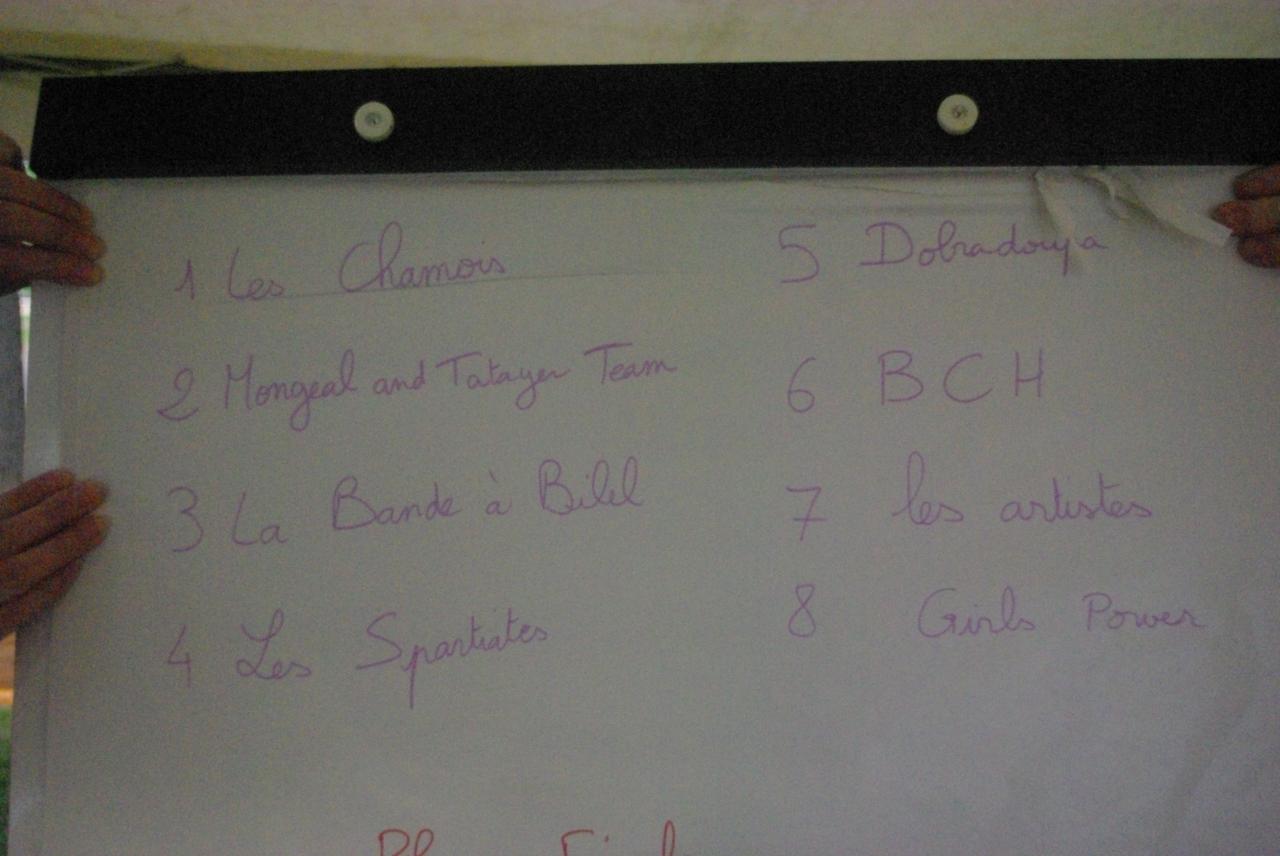 1 Les Chamois
2 Mongeal and Tatayer Team
3 La Bande à Bilel
4 Les Spartiates
5 Dobradouya
6 BCH
7 les artistes
8 Girls Power